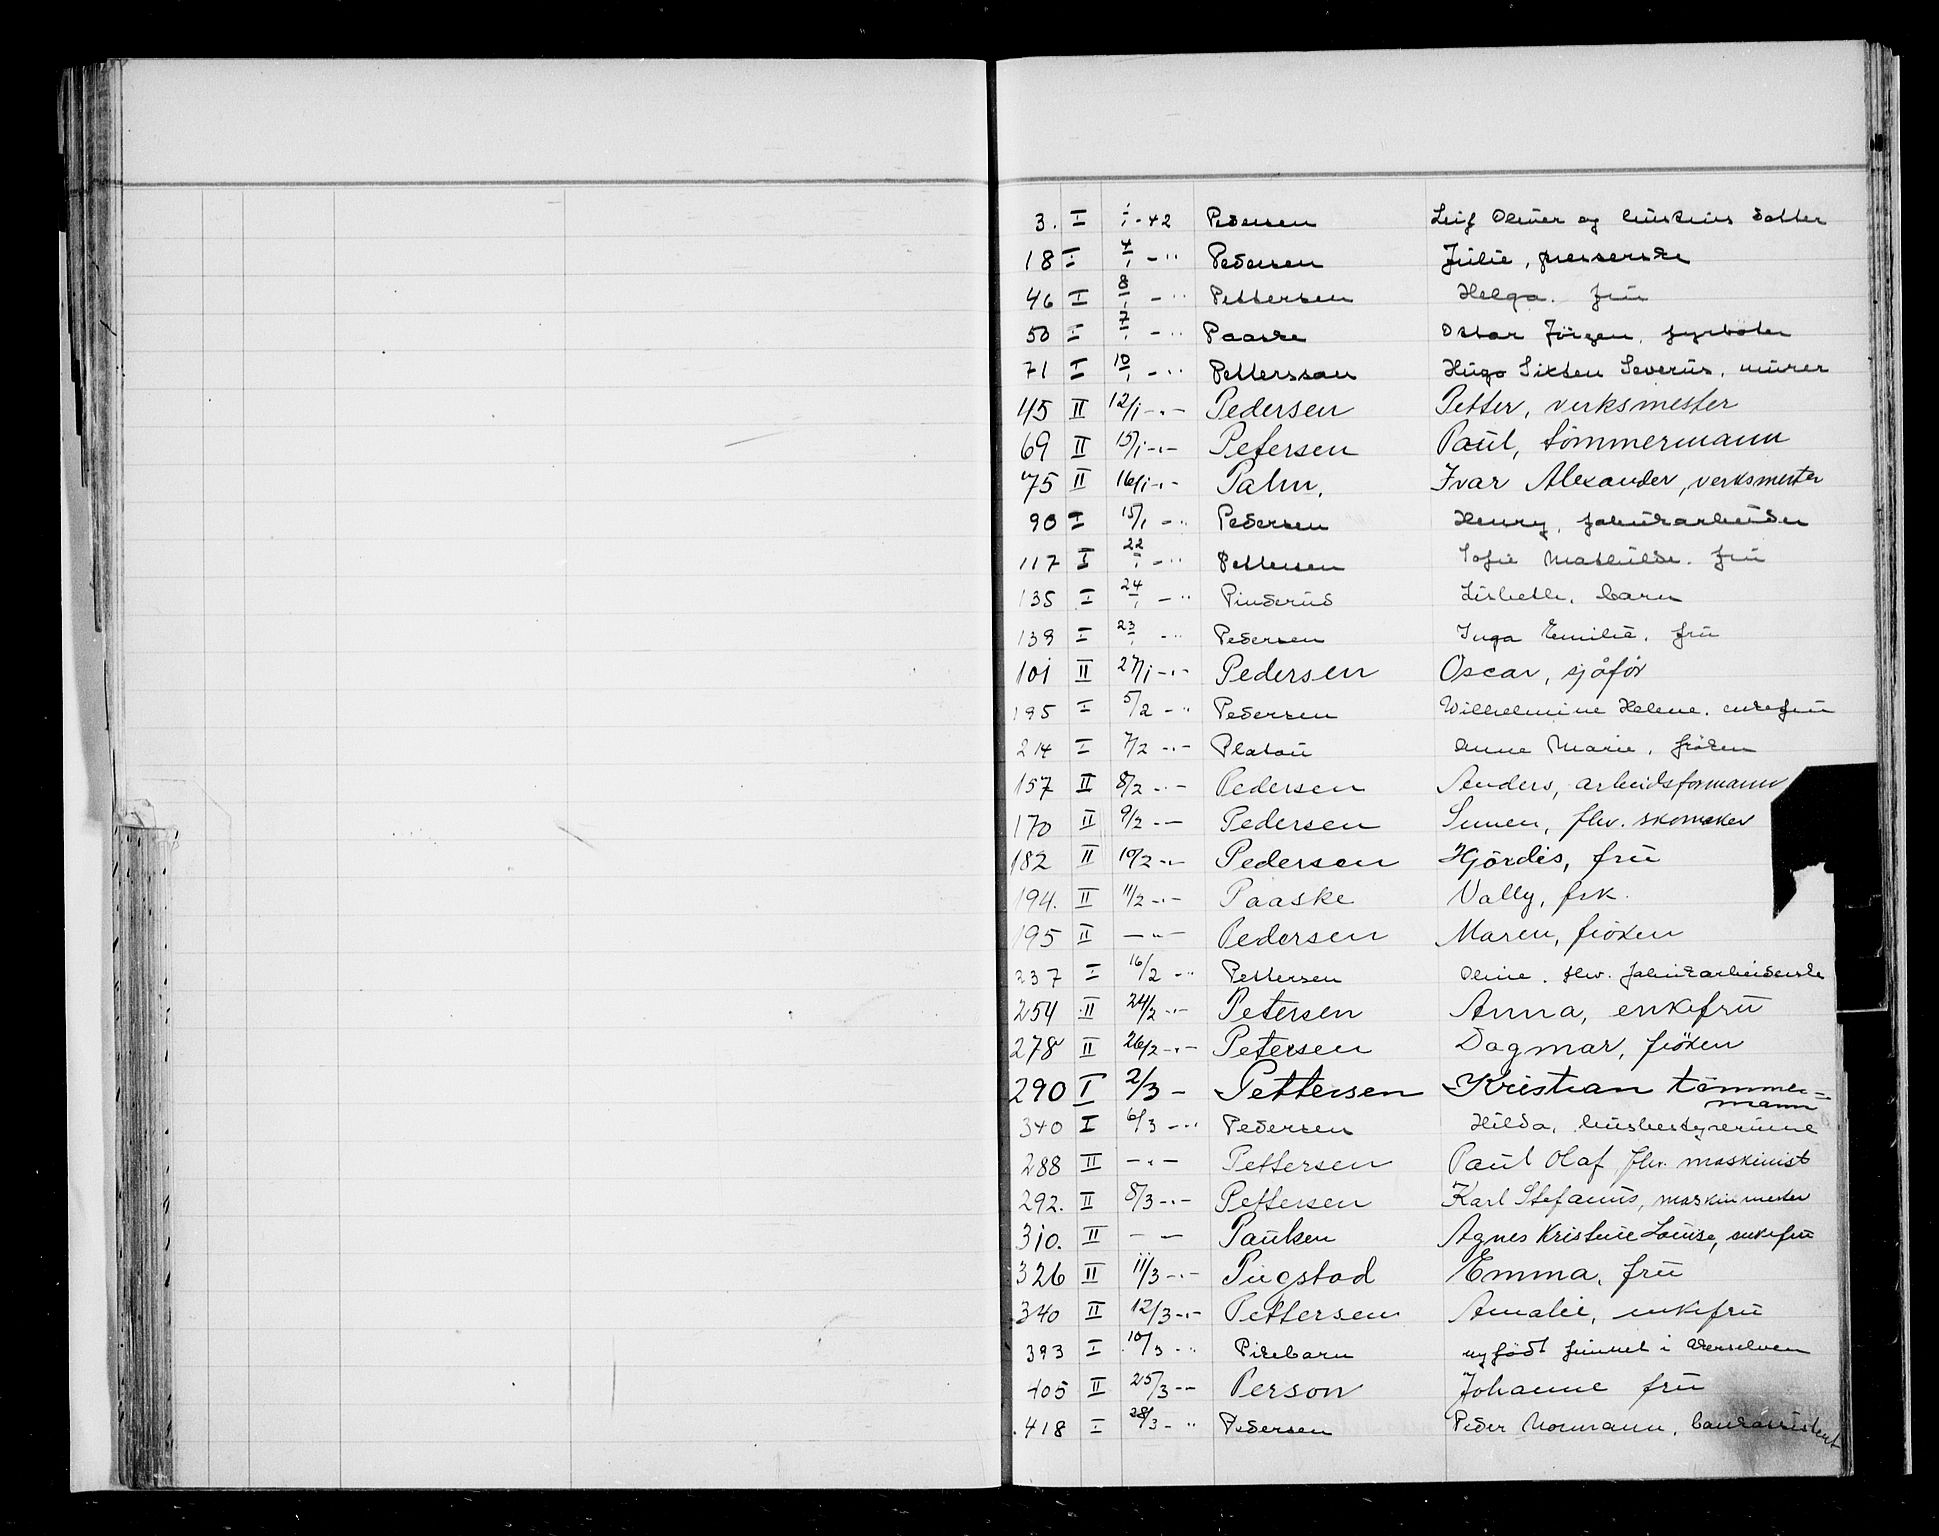 3. I 1/1 - 42 Pedersen Leif Oliver og hustrus datter
18 I 4/1 - " Pedersen Julie, presserske
46 I 8/1 - " Pettersen Helga. fru
50 I 7/1 - " Paaske Oskar Jörgen, fyrböter
71 I 10/1 - " Pettersson Hugo Sixten Severus, murer
45 II 12/1 - " - Pedersen Petter, verksmester
69 II 15/1 - " - Petersen Paul, tömmermann
75 II 16/1 - " - Palm, Ivar Alexander, verksmester
90 I 15/1 - " Pedersen Henry, fabrikarbeider
117 I 22/1 - " Pettersen Sofie Mathilde. fru
135 I 24/1 - " Pinderud Lisbeth, barn
139 I 23/1 - " Pedersen Inga Emilie, fru
101 II 27/1 - " - Pedersen Oscar, sjåför
195 I 5/2 - " Pedersen Wilhelmine Helene. enkefru
214 I 7/2 - " - Platou Anne Marie, fröken
157 II 8/2 - " - Pedersen Anders, arbeidsformann
170 II 9/2 - - Pedersen flw. skomaker
182 II 10/2 - " - Pedersen Hjördis, fru
194. II 11/2 - " - Paaske Vally, frk.
195 II - " - Pedersen Maren, fröken
237 I 16/2 - " Pettersen Oline. flw. fabrikarbeiderske
254 II 24/2 - " - Petersen Anna, enkefru
278 II 26/2 - " - Petersen Dagmar, fröken
290 I 2/3 - Pettersen Kristian tömmer=
mann
340 I 6/3 - " Pedersen Hilda, husbestyrerinne
288 II - " - Pettersen Paul Olaf flw. maskinist
292. II 8/3 - " - Pettersen Karl Stefanus, maskinmester
310. II - - Paulsen Agnes Kristine Louise, enkefru
326 II 11/3 - " - Pugstad Emma, fru
340 II 12/3 - " - Pettersen Amalie, enkefru
393 I 10/3 - " Pikebarn nyfödt funnet i Akerselven
405 II 25/3 - - Person Johanne fru
418 I 28/3 - " Pedersen Peder Normann, bankassistent